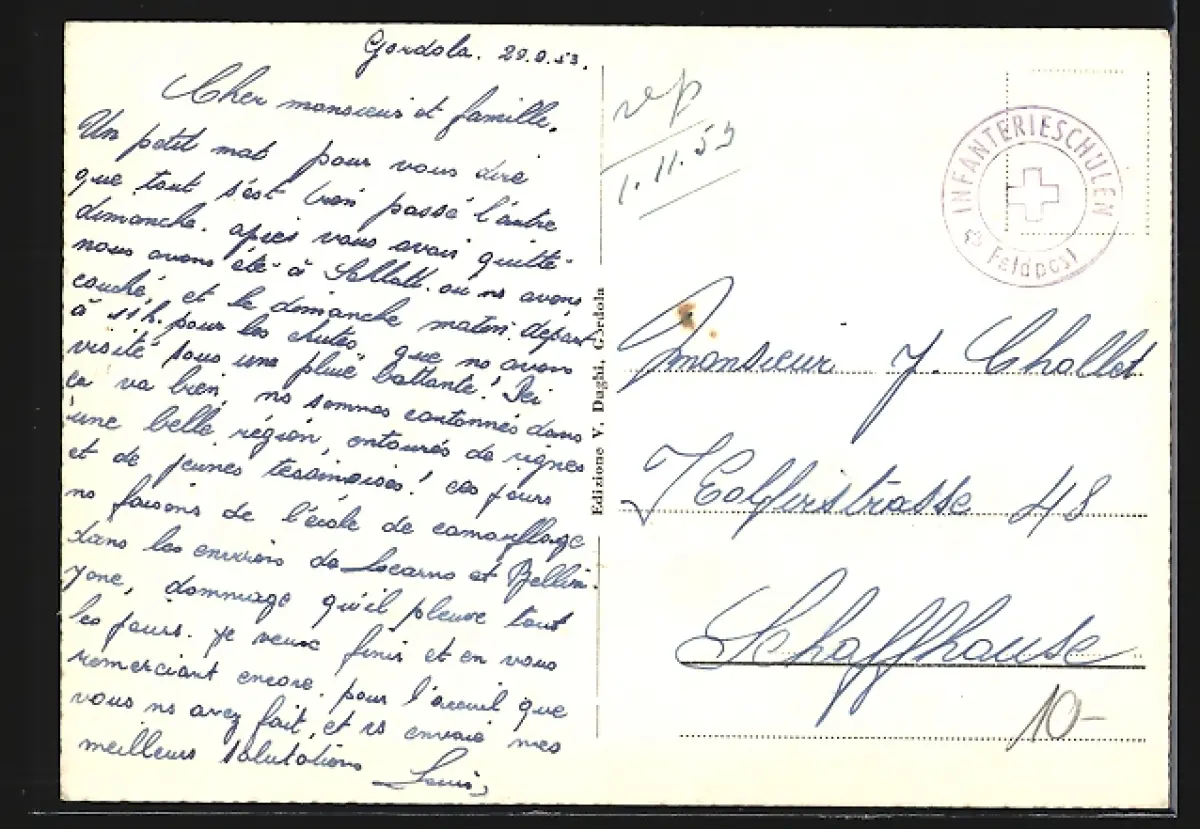 Gordola. 29.0.53.
Cher monsieur et famille.
Un petit mot pour vous dire
que tout s'est bien passé l'autre
dimanche. après vous avoir quitté
nous avons été à où ns avons
couché, et le dimanche matin: départ
à 11h. pour les chutes, que ns avons
visité sous une pluie battante! Ici
ça va bien, ns sommes cantonnés dans
une belle région, entourés de vignes
et de jeunes tessinoises! Ces jours
ns faisons de l'école de camouflage
dans les environs de Locarno et Bellin-
zone, dommage qu'il pleuve tout
les jours. Je veux finir et en vous
remerciant encore pour l'accueil que
vous ns avez fait, et vs envoie mes
meilleurs salutations
Louis,
Edizione V. Daghi, Gordola
1.11.53
INFANTERIESCHULEN
Feldpost
Monsieur J. Chollet
48
Schaffhouse
10-